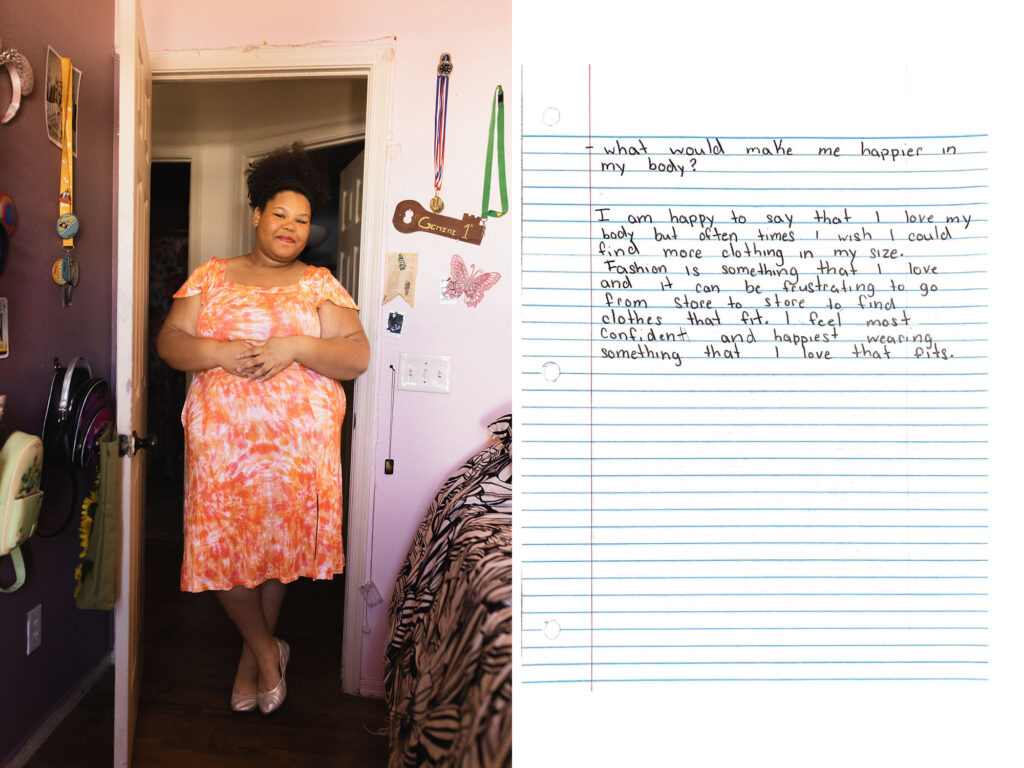 Gemini 1
- what would make me happier in
my body?
I am happy to say that I love my
body but often times I wish I could
find more clothing in my size.
Fashion is something that I love
and it can be frustrating to go
from store to store to find
clothes that fit. I feel most
confident and happiest wearing
something that I love that fits.